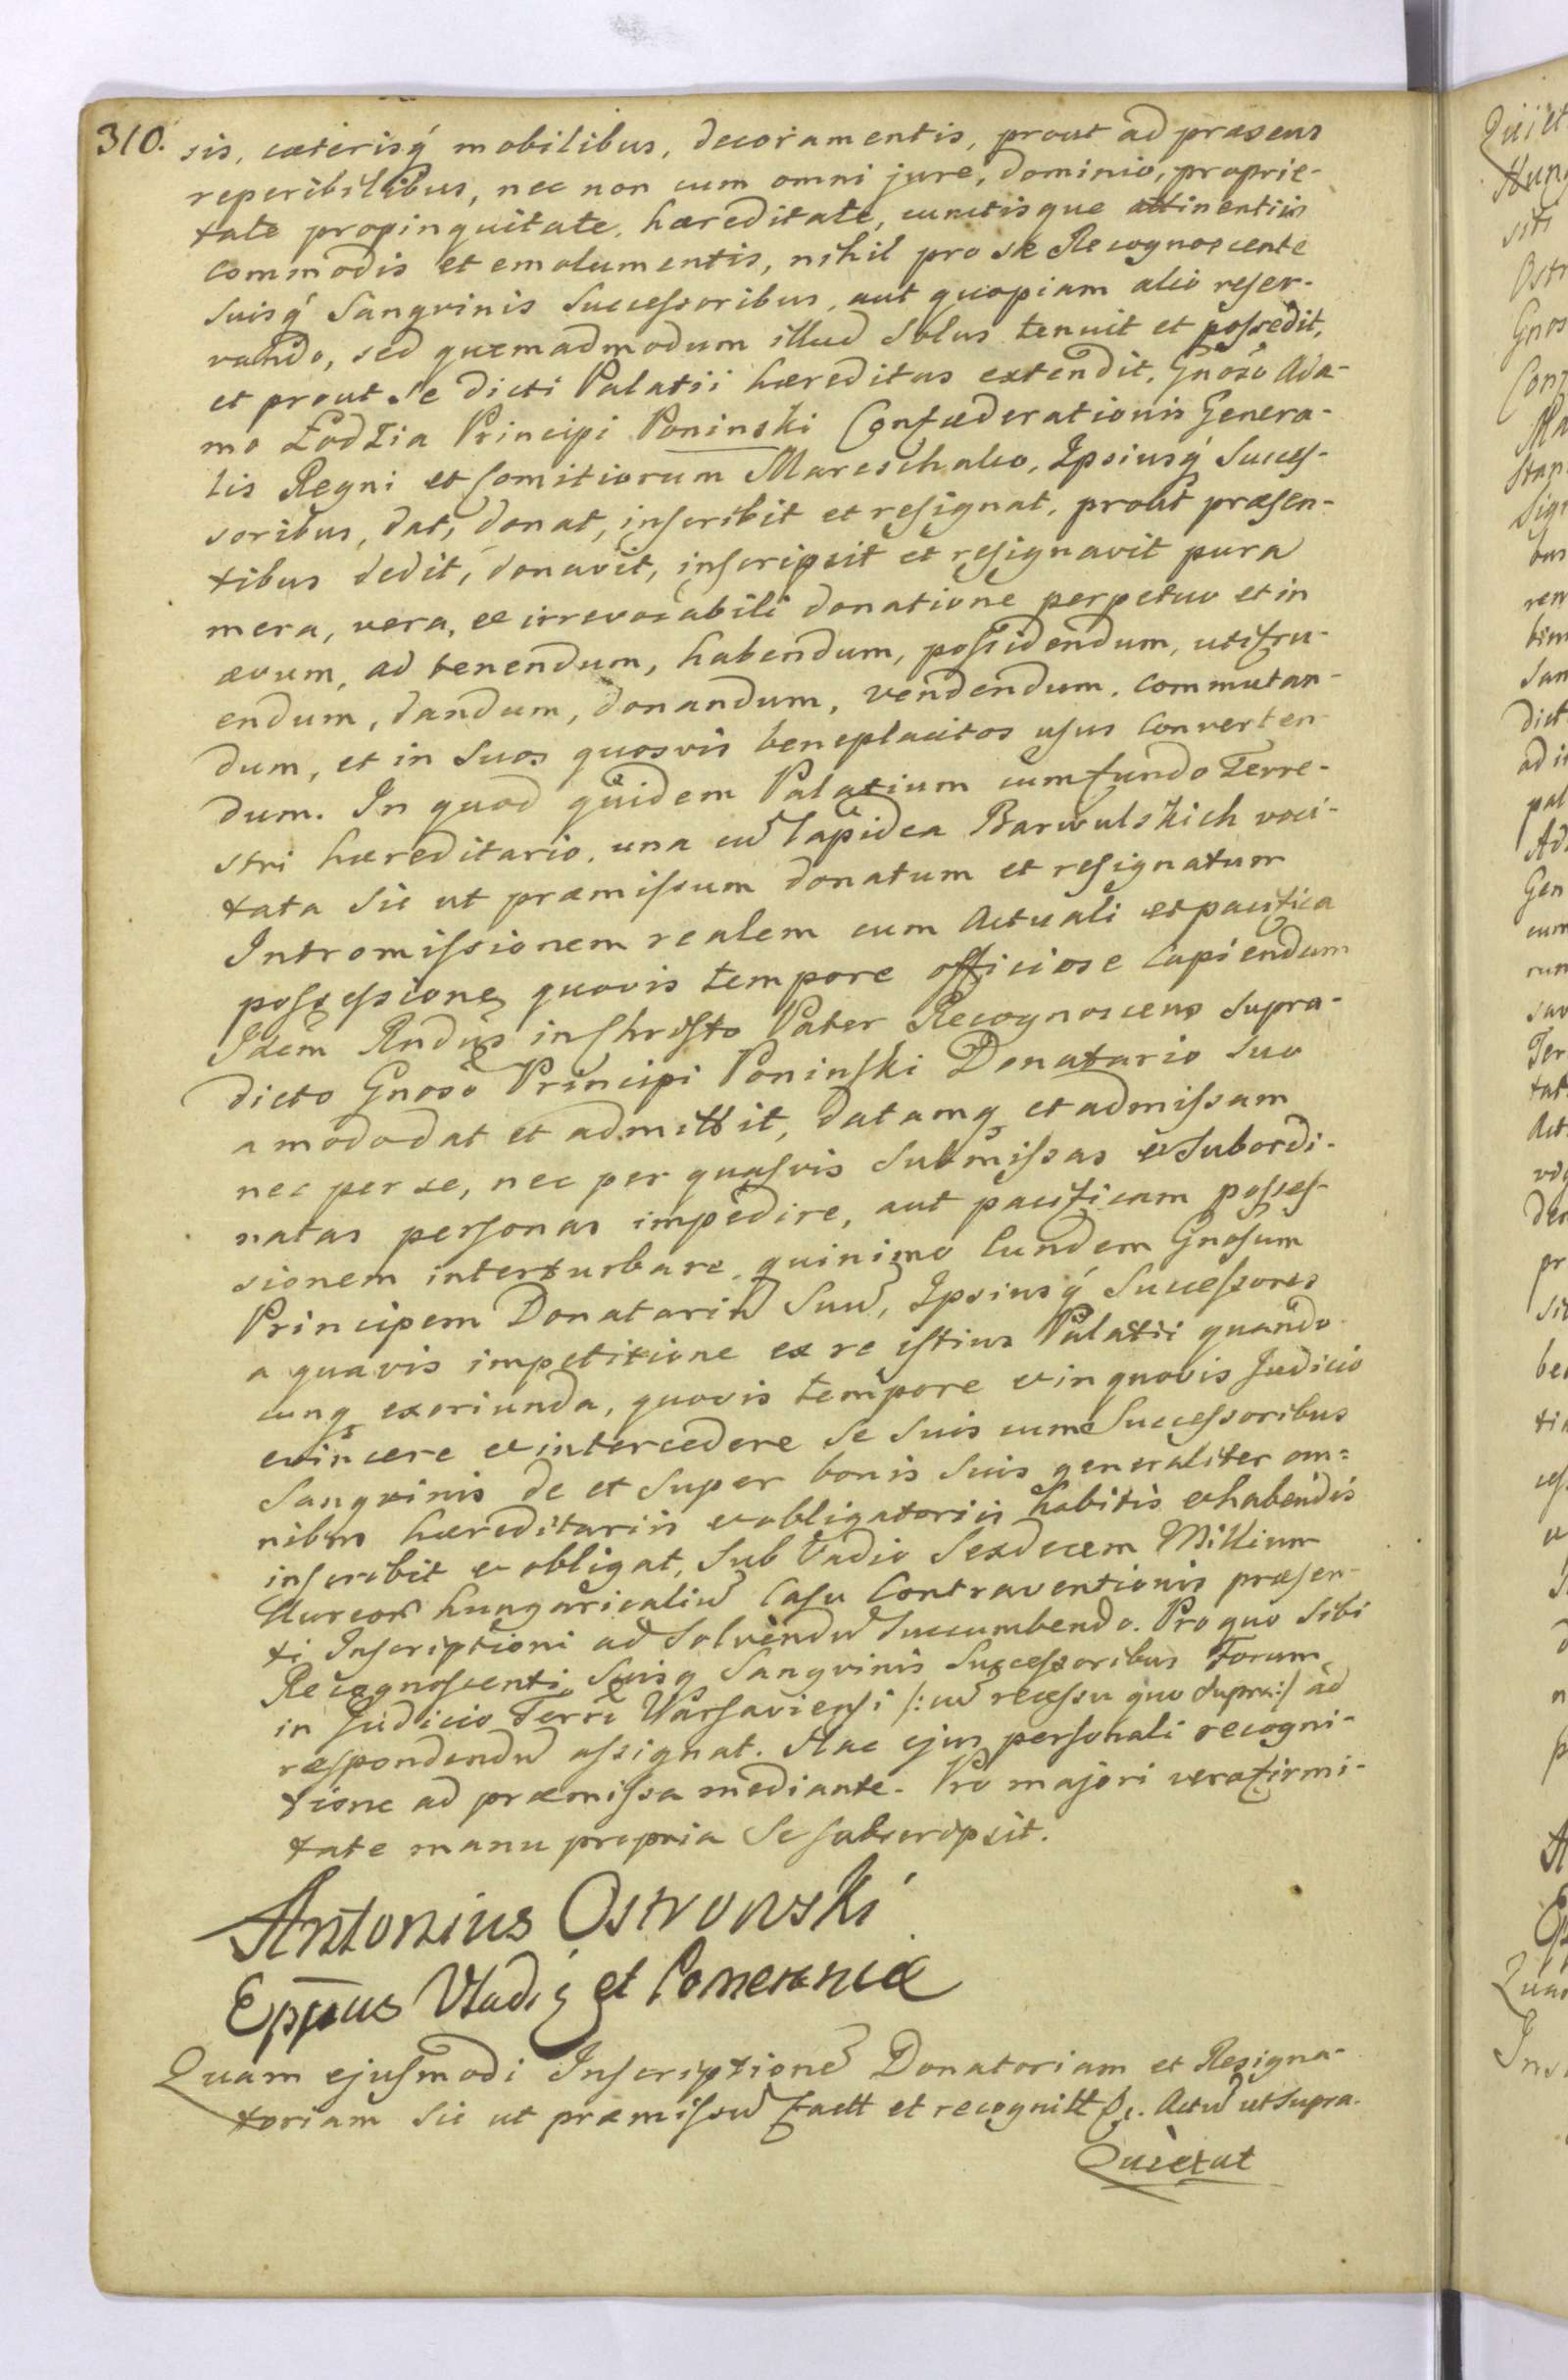 310.
sis, cæterisq́ mobilibus, decoramentis, prout ad præsens
reperibilibus, nec non cum omni jure, dominio, proprie-
tate propinquitate, hæreditate, cunctisque attinentiis
commodis et emolumentis, nihil pro se Recognoscente
suisq́ Sangvinis Successoribus, aut quopiam alio reser-
vando, sed quemadmodum illud Solus tenuit et possedit,
et prout se dicti Palatii hæreditas extendit, Gnoso Ada-
mo Łodzia Principi Poninski Confæderationis Genera-
lis Regni et Comitiorum Mareschalco, Ipsiusq́ Succes-
soribus, dat, donat, inscribit et resignat, prout præsen-
tibus dedit, donavit, inscripsit et resignavit pura
mera, vera, et irrevocabili donatione perpetuo et in
ævum, ad tenendum, habendum, possidendum, utifru-
endum, dandum, donandum, vendendum, commutan-
dum, et in Suos quosvis beneplacitos usus Converten-
dum. In quod quidem Palatium cum fundo Terre-
stri hæreditario, una cũ lapidea Barwulskich voci-
tata Sic ut præmissum donatum et resignatum
Intromissionem realem cum Actuali et pacifica
possessione quovis tempore officiose Capiendam
Idem Rndus in Christo Pater Recognoscens Supra-
dicto Gnoso Principi Poninski Donatario Suo
a modo dat et admittit, datamq et admissam
nec per se, nec per quasvis Submissas et Subordi-
natas personas impedire, aut pacificam posses-
sionem interturbare, quinimo Eundem Gnosum
Principem Donatariũ Suũ, Ipsiusq́ Successores
a quavis impetitione ex re istius Palatii quando-
cunq exoriunda, quovis tempore et in quovis Judicio
evincere et intercedere Se Suis cum Successoribus
Sangvinis de et Super bonis Suis generaliter om=
nibus hæreditariis et obligatoriis habitis et habendis
inscribit et obligat, Sub Vadio Sexdecem Millium
Aureorũ hungaricaliũ Casu Contraventionis præsen-
ti Inscriptioni ad Solvendũ Succumbendo. Pro quo Sibi
Recognoscenti Suisq Sangvinis Successoribus Forum
in Judicio Terri Varsaviensi /:cũ recessu quo Supra:/ ad
respondendũ assignat. Hac ejus personali recogni-
tione ad præmissa mediante. Pro majori vera firmi-
tate manu propria Se subscripsit.
Antonius Ostrowski
Eppus Vladis et Pomeraniæ
Quam ejusmodi Inscriptionẽ Donatoriam et Resigna-
toriam Sic ut præmissũ factt et recognitt &c. Actũ ut Supra.
Quietat